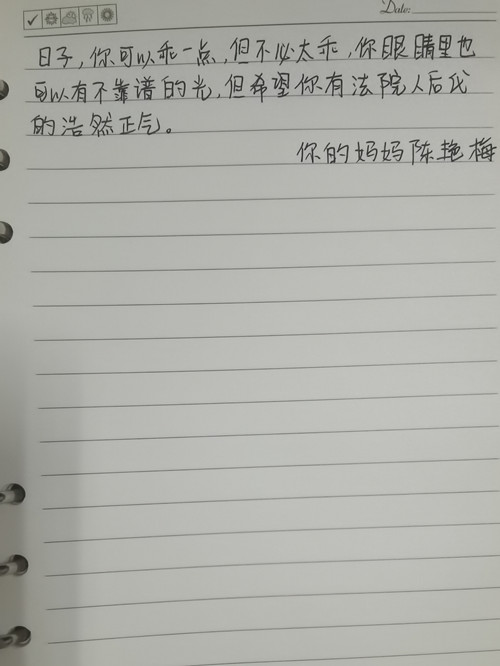 Date:
日子,你可以乖一点,但不必太乖,你眼睛里也
可以有不靠谱的光,但希望你有法院人后代
的浩然正气。
你的妈妈陈艳梅